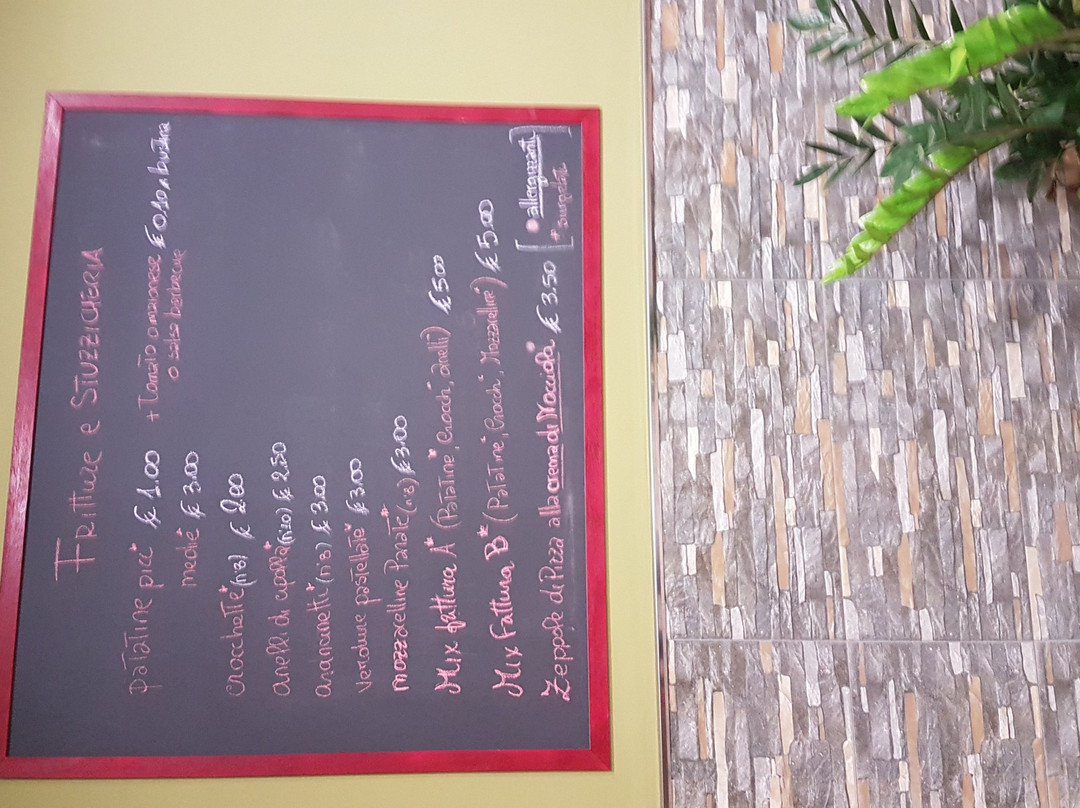 FRITTURE e STUZZICHERIA
patatine picc* € 1.00 + Tomato o maionese € 0,10 x bustina
medie* € 3.00 o salsa barbecue
crocchette* (n°3) € 2.00
anelli di cipolla* (n°10) € 2.50
arancinetti* (n°3) € 3.00
verdure pastellate* € 3.00
mozzarelline Panate* (n°3) € 3.00
Mix frittura A* (Patatine, Crocchi, anelli) € 5.00
Mix frittura B* (Patatine, Crocchi, Mozzarelline) € 5.00
Zeppole di Pizza alla crema di Nocciola € 3.50
• allergizzanti
* surgelati